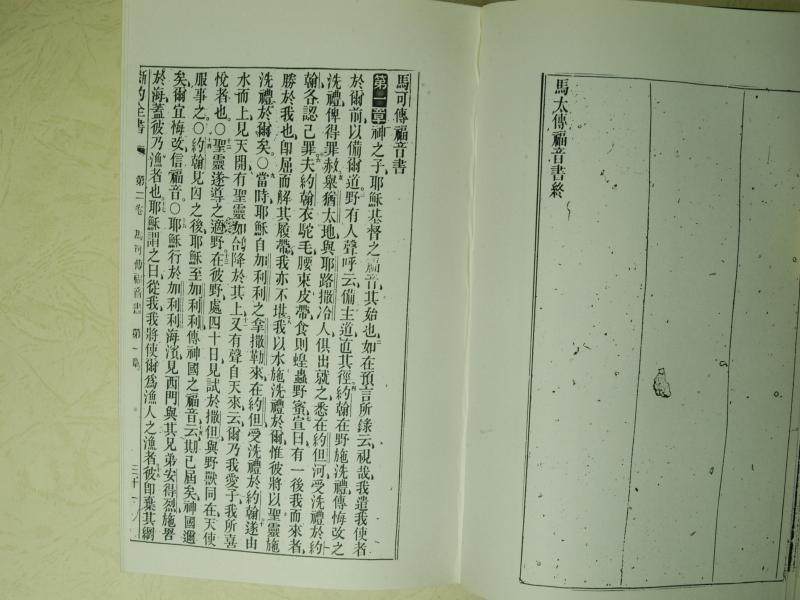 馬太傳福音書終
馬可傳福音書
第一章神之子耶穌基督之福音其始也如在預言所錄云視哉我遣我使者
於爾前以備爾道野有人聲呼云備主道直其徑約翰在野施洗禮傳悔改之
洗禮俾得罪赦舉猶太地與耶路撒冷人俱出就之悉在約但河受洗禮於約
翰各認己罪夫約翰衣駝毛腰束皮帶食則蝗蟲野蜜宣曰有一後我而來者
勝於我也卽屈而解其履帶我亦不堪我以水施洗禮於爾惟彼將以聖靈施
洗禮於爾矣○當時耶穌自加利利之拿撒勒來在約但受洗禮於約翰遂由
水而上見天開有聖靈如鴿降於其上又有聲自天來云爾乃我愛子我所喜
悅者也○聖靈遂導之適野在彼野處四十日見試於撒但與野獸同在天使
服事之○約翰見囚之後耶穌至加利利傳神國之福音云期已屆矣神國邇
矣爾宜悔改信福音○耶穌行於加利利海濱見西門與其兄弟安得烈施罟
於海蓋彼乃漁者也耶穌謂之曰從我我將使爾為漁人之漁者彼卽棄其網
新約全書 第二卷 馬可傳福音書 第一章 三十一